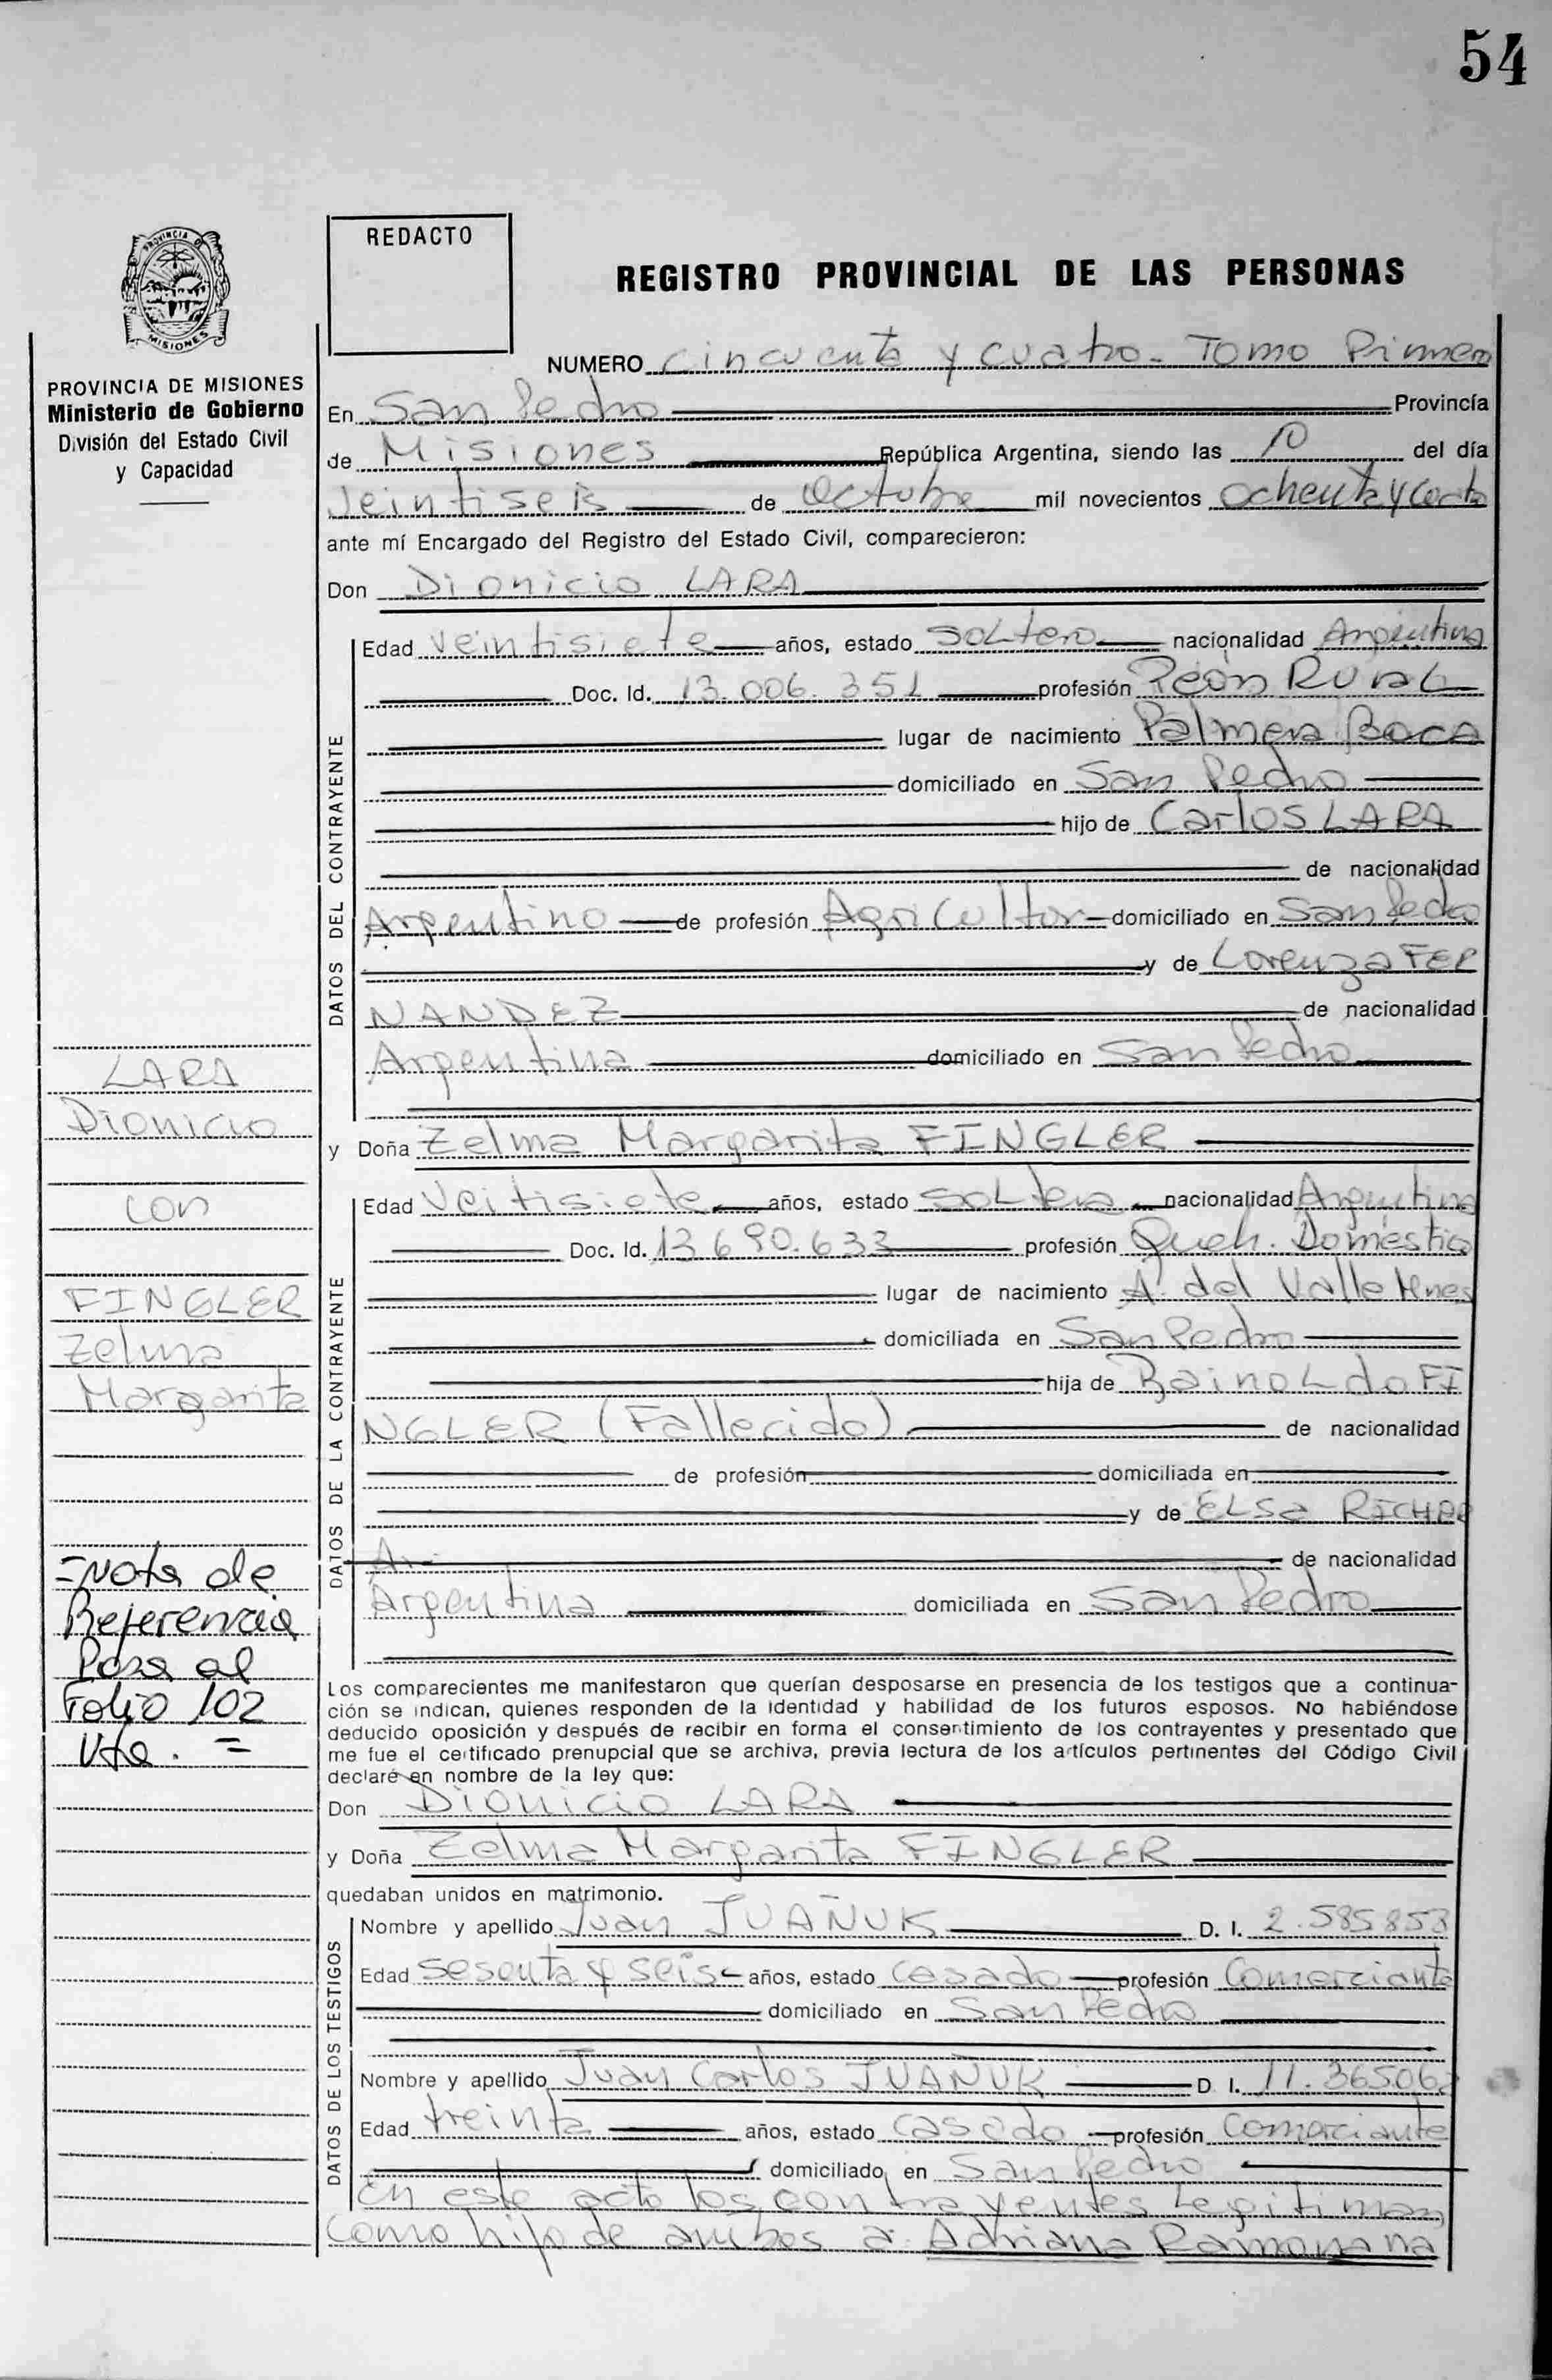 54
PROVINCIA DE
MISIONES
REDACTO
REGISTRO PROVINCIAL DE LAS PERSONAS
PROVINCIA DE MISIONES
Ministerio de Gobierno
División del Estado Civil
y Capacidad
NUMERO Cincuenta y cuatro - Tomo Primero
En San Pedro Provincia
de Misiones República Argentina, siendo las 10 del día
Veintiseis de Octubre mil novecientos ochenta y
ante mí Encargado del Registro del Estado Civil, comparecieron:
Don Dionicio LARA
DATOS DEL CONTRAYENTE
Edad Veintisiete años, estado soltero nacionalidad Argentina
Doc. Id. 13.006.351 profesión Peón Rural
lugar de nacimiento Palmera Boca
domiciliado en San Pedro
hijo de Carlos LARA
de nacionalidad
Argentino de profesión Agricultor domiciliado en San Pedro
y de Lorenza FER
NANDEZ de nacionalidad
Argentina domiciliado en San Pedro
y Doña Zelma Margarita FINGLER
DATOS DE LA CONTRAYENTE
Edad Veitisiete años, estado soltera nacionalidad Argentina
Doc. Id. 13.690.633 profesión Queh. Domestico
lugar de nacimiento A. del Valle Mnes
domiciliada en San Pedro
hija de Rainoldo FI
NGLER (Fallecido) de nacionalidad
de profesión domiciliada en
y de ELSa
A.- de nacionalidad
Argentina domiciliada en San Pedro
LARA
Dionicio
con
FINGLER
Zelma
Margarita
=Nota de
Referencia
Pasa al
Folio 102
Vto. =
Los comparecientes me manifestaron que querían desposarse en presencia de los testigos que a continua-
ción se indican, quienes responden de la identidad y habilidad de los futuros esposos. No habiéndose
deducido oposición y después de recibir en forma el consentimiento de los contrayentes y presentado que
me fue el certificado prenupcial que se archiva, previa lectura de los artículos pertinentes del Código Civil
declaré en nombre de la ley que:
Don Dionicio LARA
y Doña Zelma Margarita FINGLER
quedaban unidos en matrimonio.
DATOS DE LOS TESTIGOS
Nombre y apellido Juan JUAÑUK D. I. 2.585.853
Edad Sesenta y seis años, estado Casado profesión Comerciante
domiciliado en San Pedro
Nombre y apellido Juan Carlos JUAÑUK D. I. 11.365.06
Edad treinta años, estado casado profesión Comerciante
domiciliado en San Pedro
En este acto los contrayentes legitiman
como hijo de ambos a: Adriana